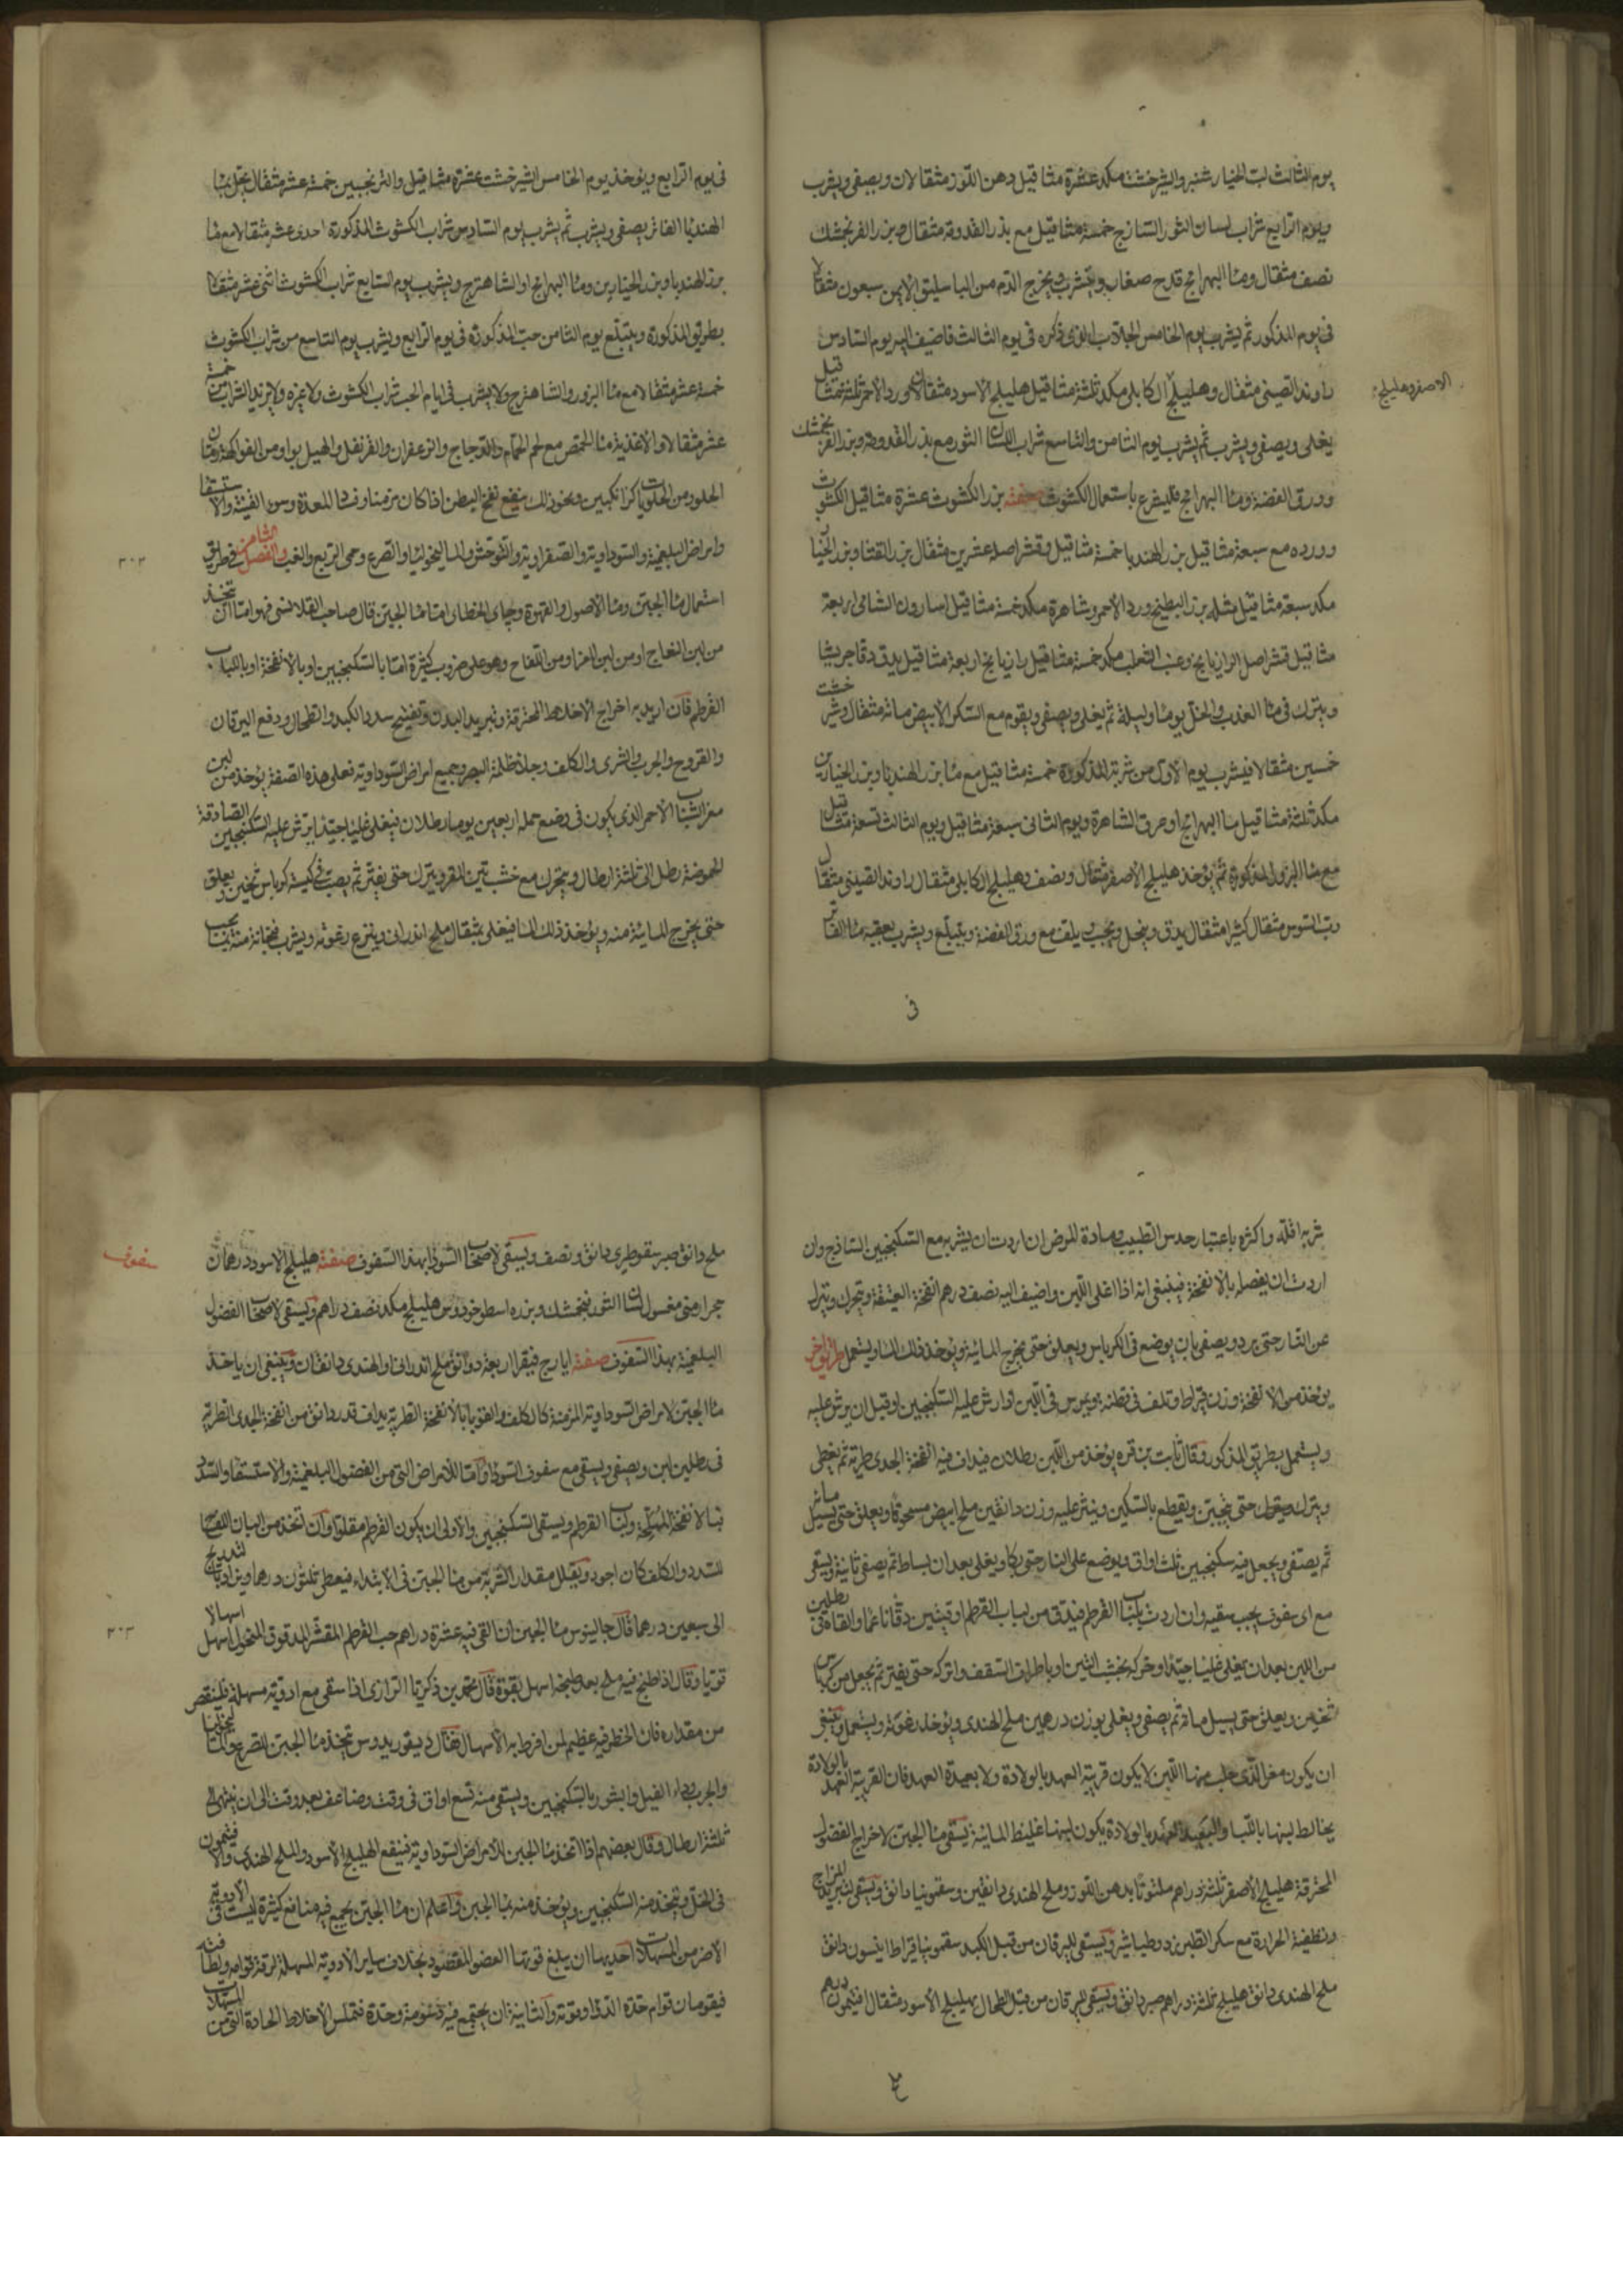 يوم الثالث لب الخيار شنبر والشيرخشت مكد عشرة مثاقيل دهن اللوز مثقالان ويصفى ويشرب
ويوم الرابع شراب لسان الثور الساذج خمسة مثاقيل مع بذر القدومه مثقال بزر الفرنجمشك
نصف مثقال وماء البهرامج قدح صغاب ويشرب ويخرج الدم من الباسليق الايمن سبعون مثقالا
فى يوم المذكور ثم يشرب يوم الخامس الجلاب الذى ذكره فى يوم الثالث فاضيف اليه يوم السادس
راوند الصينى مثقال وهليلج الكابلى مكد ثلثة مثاقيل هليلج الاسود مثقالان ورد الاحمر ثلثة مثاقيل
الاصفر وهليلج
يغلى ويصفى ويشرب ثم يشرب يوم الثامن والتاسع شراب اللسان الثور مع بذر القدومة وبزر الفرنجمشك
وورق الفضة وماء البهرامج فليفرغ باستعمال الكشوث صفته بزر الكشوث عشرة مثاقيل الكشوث
وورده مع سبعة مثاقيل بزر الهندبا خمسة مثاقيل وقشر اصله عشرين مثقال بزر القثا وبزر الخيار
مكد سبعة مثاقيل مثله بزر البطيخ ورد الاحمر وشاهترة مكد خمسة مثاقيل اسارون الشامى اربعة
مثاقيل قشر اصل الرازيانج وعنب الثعلب مكد خمسة مثاقيل رازيانج اربعة مثاقيل يدق دقا جريشا
ويترك فى ماء العذب والخل يوما وليلة ثم يغلى ويصفى ويقوم مع السكر الابيض مائة مثقال وشيرخشت
خمسين مثقالا فيشرب يوم الاول من شربة المذكورة خمسة مثاقيل مع ماء بزر الهندبا وبزر الخيارين
مكد ثلثة مثاقيل ماء البهرامج او عرق الشاهترة ويوم الثانى سبعة مثاقيل ويوم الثالث تسعة مثاقيل
مع ماء البزور المذكورة ثم يؤخذ هليلج الاصفر مثقال ونصف وهليلج الكابلى مثقال راوند الصينى مثقال
رب السوس مثقال كثيرا مثقال يدق وينخل ويحبب ويلف مع ورق الفضة ويبتلع ويشرب بعقبه ماء الفاتر
فى
فى يوم الرابع ويؤخذ يوم الخامس الشيرخشت عشرة مثاقيل والترنجبين خمسة عشر مثقال يحل بماء
الهندبا الفاتر يصفى ويشرب ثم يشرب يوم السادس شراب الكشوث المذكورة احدى عشر مثقالا مع ماء
بزر الهندبا وبزر الخيارين وماء البهرامج او الشاهترج ويشرب يوم السابع شراب الكشوث اثنى عشر مثقالا
بطريق المذكورة ويبتلع يوم الثامن حب المذكورة فى يوم الرابع ويشرب يوم التاسع من شراب الكشوث
خمسة عشر مثقالا مع ماء البزور والشاهترج ولا يشرب فى ايام الحب شراب الكشوث ولا غيره ولا يزيد الشراب من خمسة
عشر مثقالا والاغذية ماء الحمص مع لحم الحمام والدجاج والزعفران والقرنفل والهيل بوا ومن الفواكه رمان
الحلو ومن الحلويات كزانكبين ونحو ذلك ينفع نفخ البطن اذا كان مزمنا وفساد المعدة وسوء القنية والاستسقا
وامراض البلغمية والسوداوية والصفراوية والتوحش والماليخوليا والصرع وحمى الربع والغب والفصل الثامن فى طريق
استعمال ماء الجبن وماء الاصول والقهوة وچاى الخطاى اما ماء الجبن قال صاحب القلانسى فهو اما ان تتخذ
من لبن النعاج او من لبن المعز او من اللقاح وهو على ضروب كثيرة اما بالسكنجبين او بالانفحة او بالباب
القرطم فان اريد به اخراج الاخلاط المحترقة وتبريد البدن وتفتيح سدد الكبد والطحال ودفع اليرقان
والقروح والجرب والشرى والكلف وجلاء ظلمة البصر وجميع امراض السوداوية فعلى هذه الصفة يؤخذ من لبن
معز الشباب الاحمر الذى يكون فى وضع حمله اربعين يوما رطلان فيغلى غليانا جيدا يرش عليه السكنجبين الصادقة
الحموضة رطل الى ثلثة ارطال ويحرك مع خشب تين المقر ويترك حتى يفتر ثم يصب فى كيسة كرباس ثخين ويعلق
حتى يخرج المائية منه ويؤخذ ذلك الماء فيغلى بمثقال ملح اندرانى وينزع رغوته ويشرب فنجانة منه بحسب
٣٠٢
شربه اقله واكثره باعتبار حدس الطبيب ومادة المرض ان اردت ان يشربه مع السكنجبين الساذج وان
اردت ان يفصله بالانفحة فينبغى انه اذا اغلى اللبن واضيف اليه نصف درهم انفحة العتيقة ويحرك وينزل
عن النار حتى يبرد ويصفى بان يوضع فى الكرباس ويعلق حتى يخرج المائية ويؤخذ ذلك الماء ويستعمل طريق اخر
يؤخذ من الانفحة وزن قيراط وتلف فى قطنة ويمرس فى اللبن اذا رش عليه السكنجبين او قبل ان يرش عليه
ويستعمل بطريق المذكور وقال ثابت بن قره يؤخذ من اللبن رطلان فيداف فيه انفحة الجدى طرية ثم يغطى
ويترك حتى يتجبن ويقطع بالسكين وينثر عليه وزن دانقين ملح ابيض مسحوقا ويعلق حتى يسيل مائه
ثم يصفى ويجعل فيه سكنجبين ثلث اواق ويوضع على النار حتى يغلى بعد ان يساط ثم يصفى ثانية ويسقى
مع اى سفوف يجب سقيه وان اردت بلباب القرطم فيدق من لباب القرطم اوقيتين دقا ناعما والقاه فى رطلين
من اللبن بعد ان يغلى غليانا جيدا وحركه بخشب التين او باطراف السقف واتركه حتى يفتر ثم يجعل من كرباس
ثخين ويعلق حتى يسيل مائه ثم يصفى ويغلى بوزن درهمين ملح الهندى ويؤخذ رغوته ويستعمل وينبغى
ان يكون معز الذى حلب منها اللبن لا يكون قريبة العهد بالولادة ولا بعيدة العهد فان القريبة العهد بالولادة
يخالط لبنها باللبا والبعيدة العهد بالولادة يكون لبنها غليظ المائية يسقى ماء الجبن لاخراج الفضول
المحترقة هليلج الاصفر ثلثة دراهم ملتوتا بدهن اللوز وملح الهندى دانقين وسقمونيا دانق ويسقى لتبريد المزاج
وتطفية الحرارة مع سكر الطبرزد وطباشير ويسقى لليرقان من قبل الكبد سقمونيا قيراط انيسون دانق
ملح الهندى دانق هليلج ثلثة دراهم صبر دانق ويسقى لليرقان من قبل الطحال هليلج الاسود مثقال افتيمون درهم
ملح دانق صبر سقوطرى دانق ونصف ويسقى لاصحاب السودا بهذا السفوف صفته هليلج الاسود درهمان
سفوف
حجر ارمنى مغسول لسان الثور فنجمشك وبزره اسطوخودوس هليلج مكد نصف دراهم ويسقى لاصحاب الفضول
البلغمية بهذا السفوف صفته ايارج فيقرا اربعة دوانق ملح اندرانى او الهندى دانقان وينبغى ان ياخذ
ماء الجبن لامراض السوداوية المزمنة كالكلف والقوبا بالانفحة الطرية يداف قدر دانق من انفحة الجدى الطرية
فى رطلين لبن ويصفى ويسقى مع سفوف السودا واما للامراض التى من الفضول البلغمية والاستسقا والسدد
فبالانفحة المملحة ولباب القرطم ويسقى السكنجبين والاولى ان يكون القرطم مقلوا وان تتخذ من البان اللقاح
للسدد والكلف كان اجود ويقلل مقدار الشربة من ماء الجبن فى الابتداء فيعطى ثلثون درهما ويزاد بالتدريج
الى سبعين درهما قال جالينوس ماء الجبن ان القى فيه عشرة دراهم حب القرطم المقشر المدقوق المنخول اسهل اسهالا
قويا وقال اذا طبخ فيه ملح بعد طبخه اسهل بقوة قال محمد بن ذكريا الرازى اذا سقى مع ادوية مسهلة فلينقص
من مقداره فان الخطر فيه عظيم لمن افرط به الاسهال فقال ديقوريدوس تتخذ ماء الجبن للصرع والماليخوليا
والجرب وداء الفيل والبثور بالسكنجبين ويسقى منه تسع اواق فى وقت وضاعف بعد وقت الى ان ينتهى الى
ثلثة ارطال وقال بعضهم اذا اتخذ ماء الجبن للامراض السوداوية فينقع الهليلج الاسود والملح الهندى والافتيمون
فى الخل ويتخذ منه السكنجبين ويؤخذ منه ماء الجبن واعلم ان ماء الجبن يجمع فيه منافع كثيرة ليست فى الادوية
الاخر من المسهلات احديها ان يبلغ قوتها العضو المقصود بخلاف ساير الادوية المسهلة لرقة قوامه ولطافته
فيقومان قوام حدة الدواء وقوته والثانية ان يجتمع فيه دسومة وحدة فتملس الاخلاط الحادة التى من المسهلات
٣٠٣